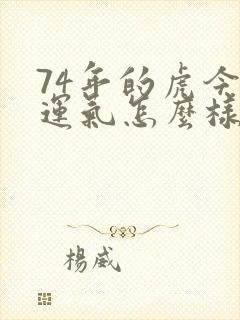 74年的虎今
運氣怎麼樣
楊威